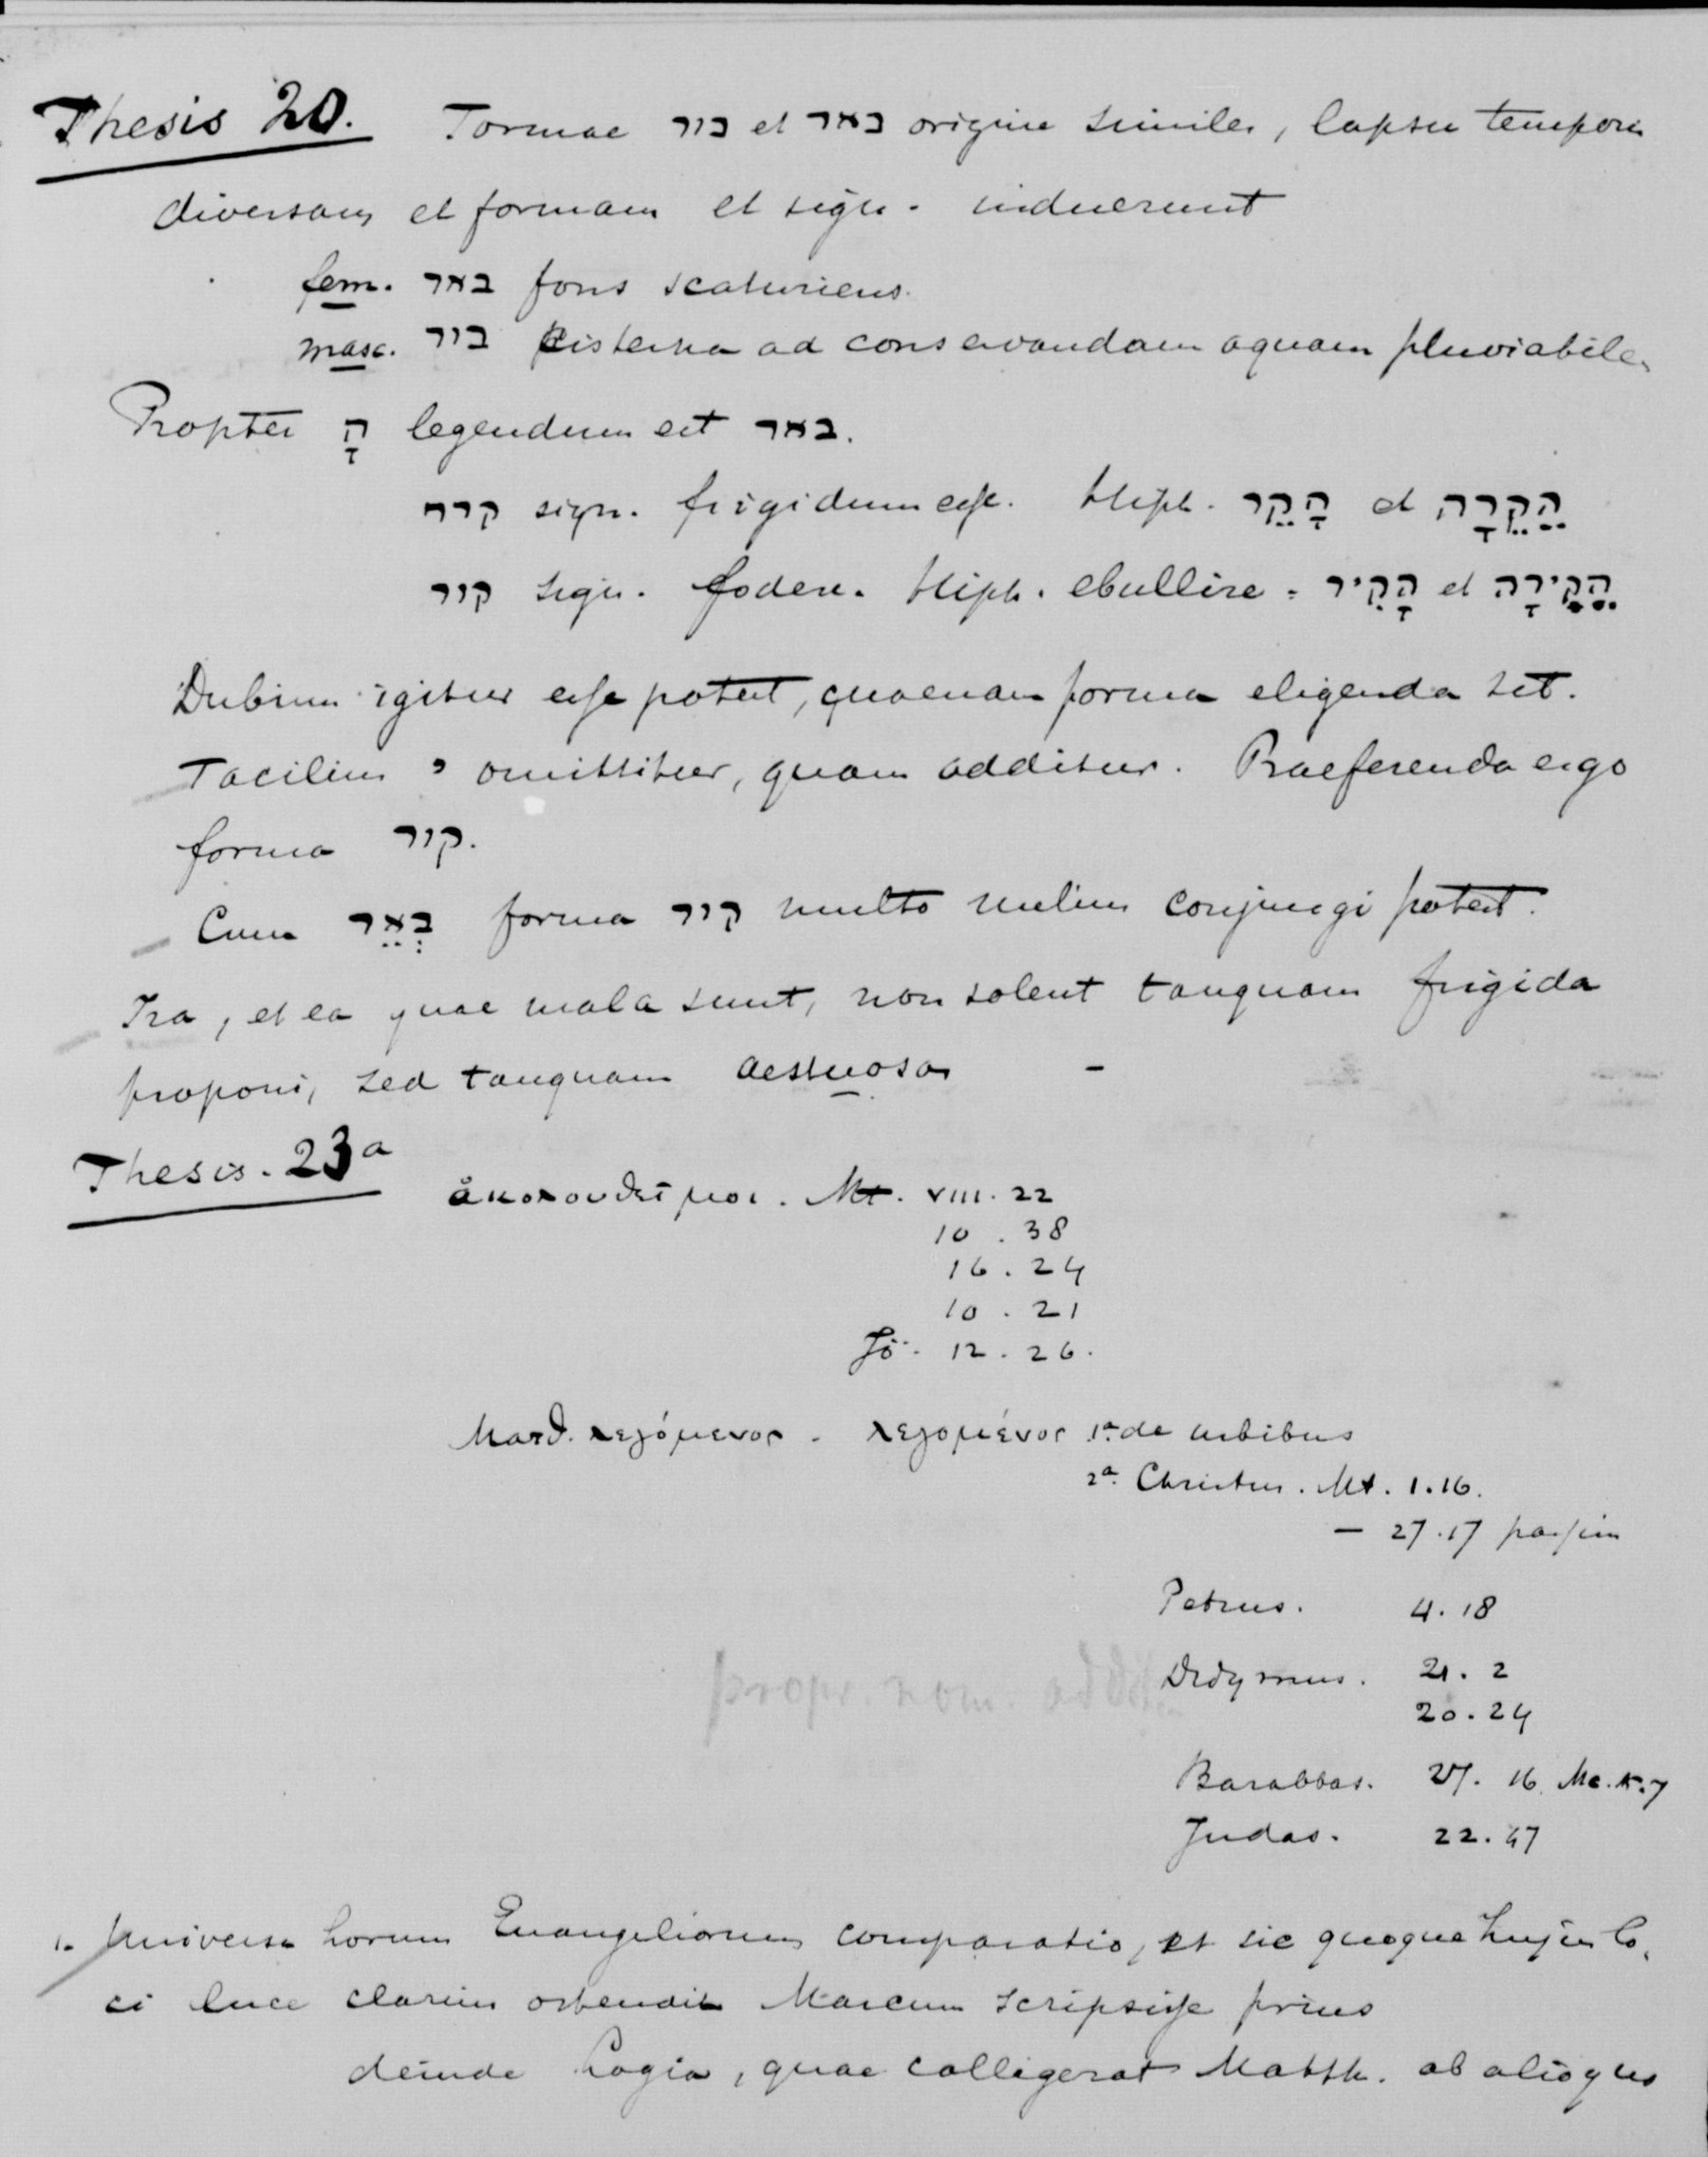 Thesis 20. Formae בור et באר origine similes, lapsu temporis
diversam et formam et sign. induerunt
fem. באר fons scaturiens.
masc. בור cisterna ad conservandam aquam pluviabilem
Propter הָ legendum est באר.
קרר sign. frigidum esse. Hiph. הָקֵר et הֲקֵרָה
קור sign. fodere. Hiph. ebullire = הָקִיר et הֲקִירָה
Dubium igitur esse potest, quaenam forma eligenda sit.
Facilius י omittitur, quam additur. Praeferenda ergo
forma קור.
Cum בְּאֵר forma קור multo melius conjungi potest.
Ira, et ea quae mala sunt, non solent tanquam frigida
proponi, sed tanquam aestuosa -
Thesis. 23a
ἀκολουθεῖ μοι. Mt. VIII. 22
10. 38
16. 24
10. 21
Jo. 12. 26.
Ματθ. λεγόμενος. λεγομένος 1a. de urbibus
2a. Christus. Mt. 1.16.
— 27.17 passim
Petrus. 4. 18
propr. nom. addit.
Didymus. 21. 2
20. 24
Barabbas. 27. 16. Mc. 15.7
Judas. 22. 47
1. Universa horum Euangeliorum comparatio, et sic quoque hujus lo-
ci luce clarius ostendit Marcum scripsisse prius
deinde Logia, quae colligerat Matth. ab alioque